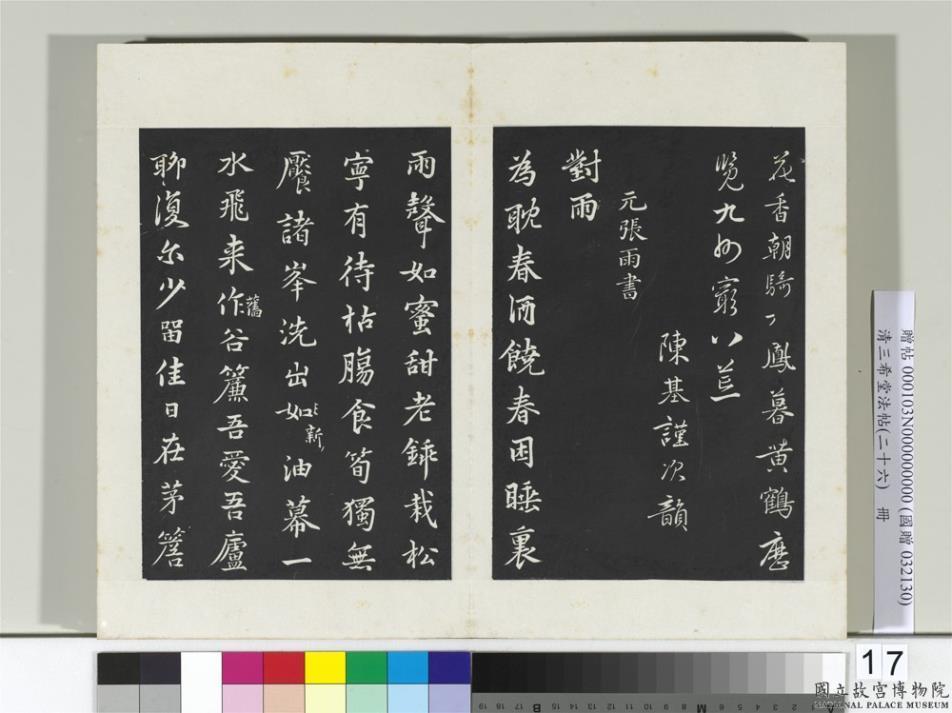 花香朝騎丁鳳暮黃鶴歷
覽九州窮八荒
陳基謹次韻
元張雨書
對雨
為耽春酒饒春困睡裏
雨聲如蜜甜老銕栽松
寧有待枯腸食筍獨無
饜諸峯洗出如新油幕一
水飛来作舊谷簾吾愛吾廬
聊復尔少留佳日在茅簷
贈帖 000103N000000000 (國贈 032130)
清三希堂法帖(二十六) 冊
17
國立故宮博物院
NATIONAL PALACE MUSEUM